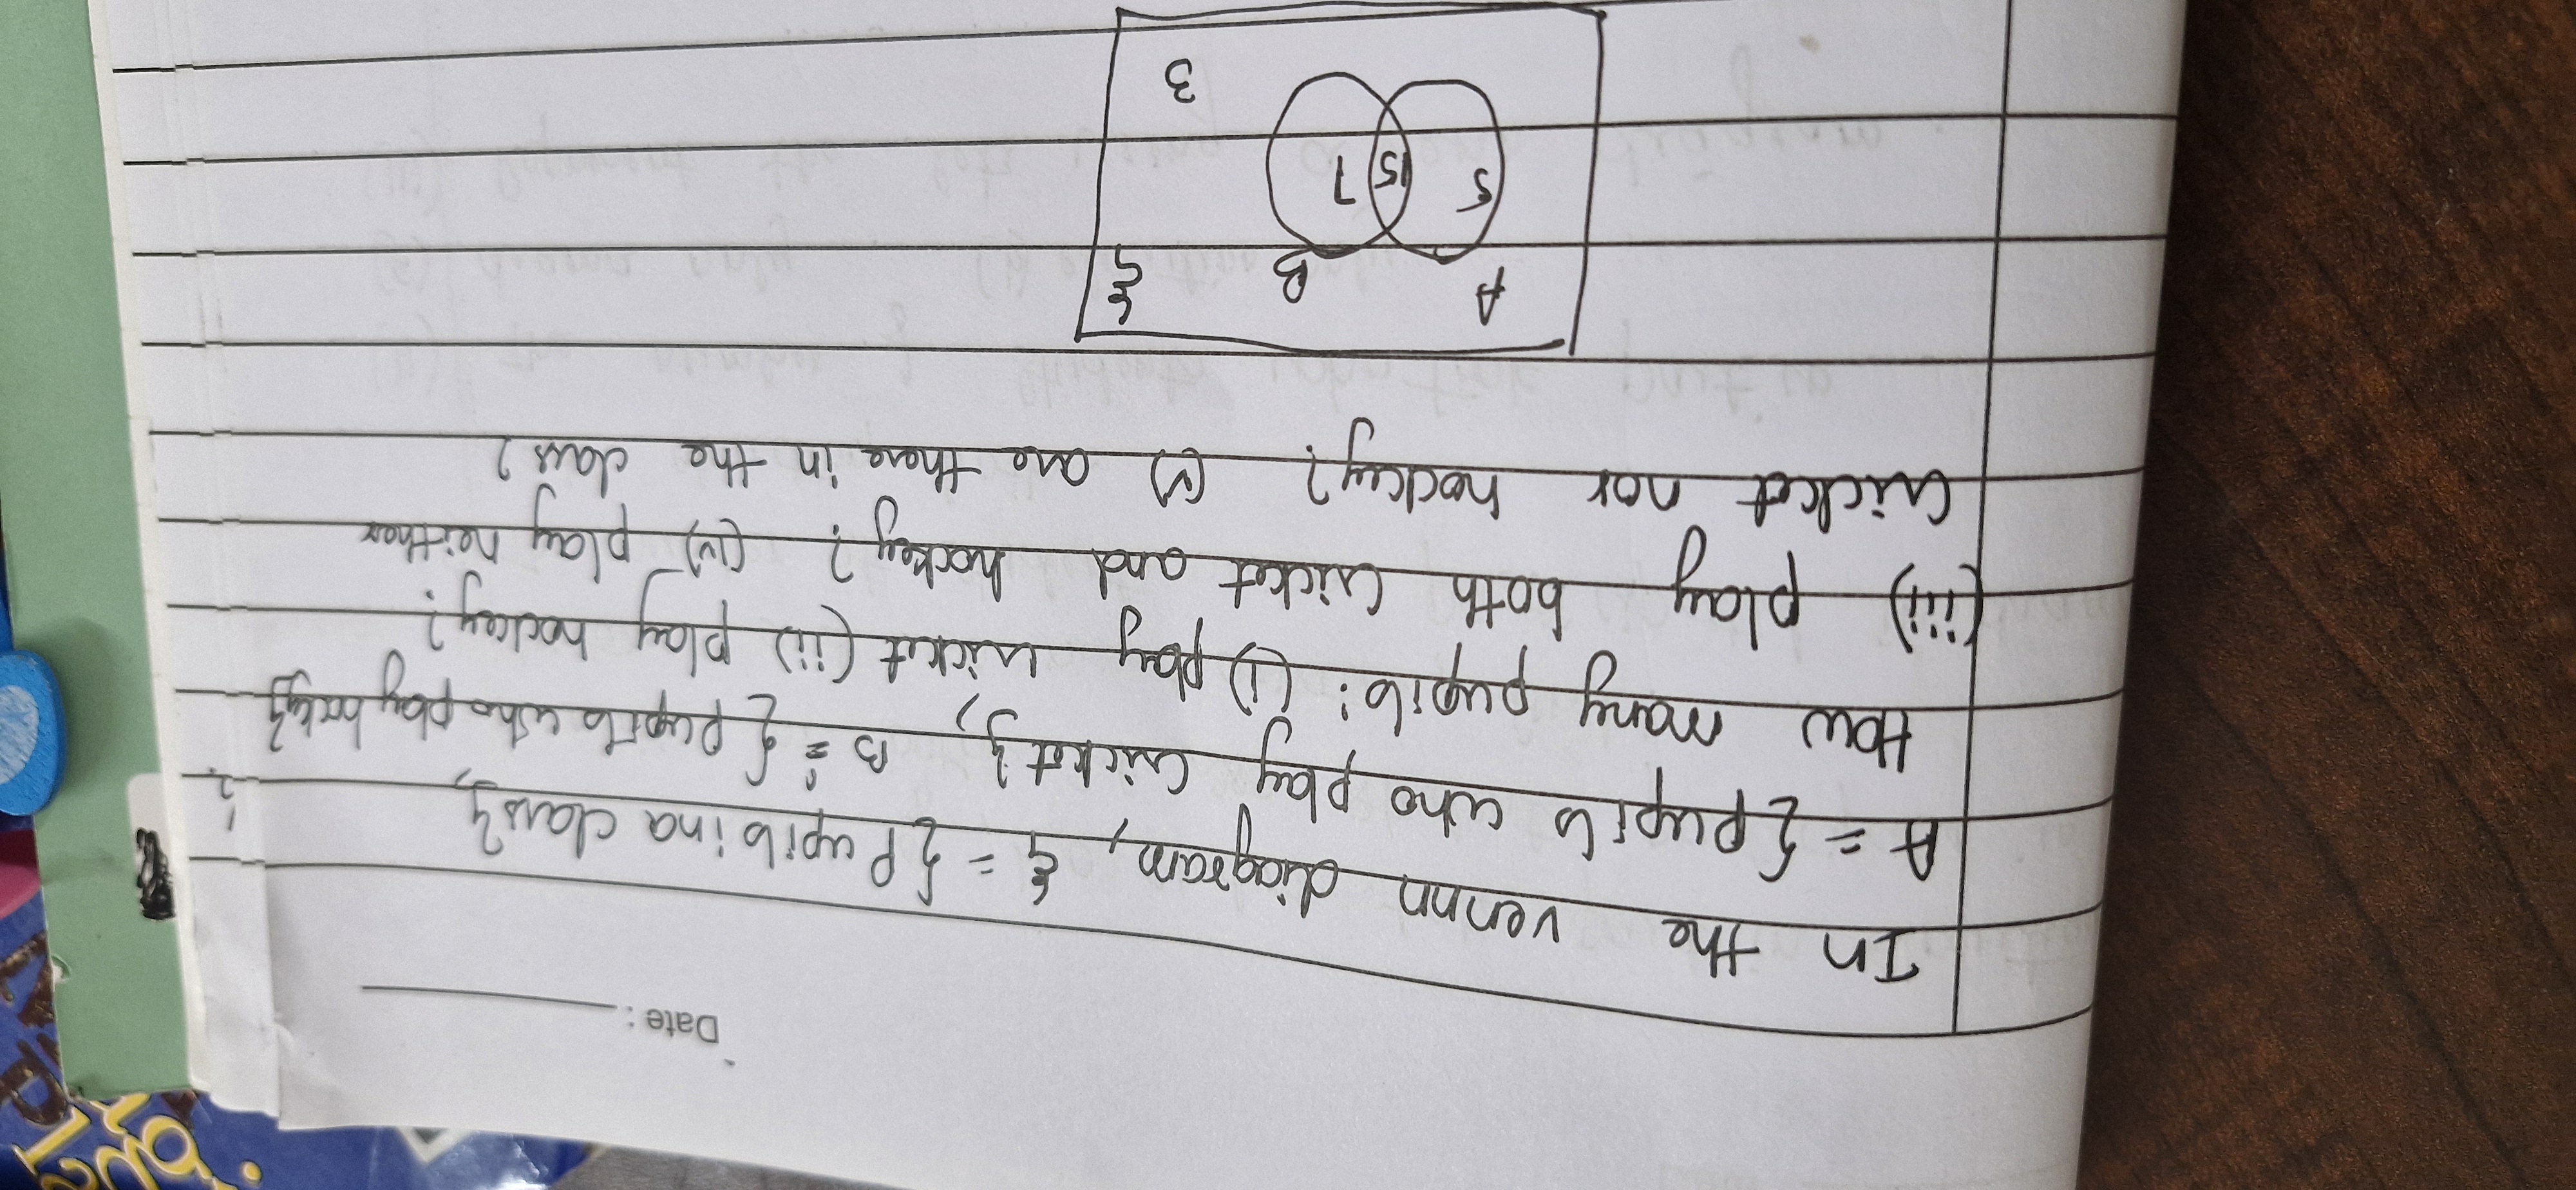 Date:
In the venn diagram, ξ = {Pupils in a class},
A = {pupils who play cricket}, B = {pupils who play hocky}
How many pupils: (i) play cricket (ii) play hockey?
(iii) play both cricket and hockey? (iv) play neither
cricket nor hockey? (v) are there in the class?
A B ξ
5 15 7
3